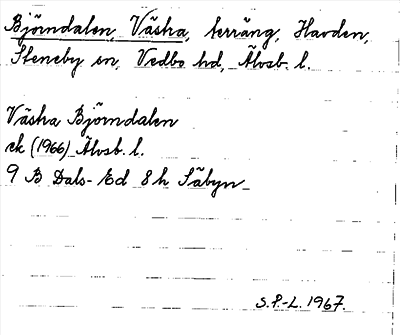 Björndalen, Västra, terräng, Havden,
Steneby sn, Vedbo hd, Älvsb. l.
Västra Björndalen
ek (1966) Älvsb. l.
9 B Dals-Ed 8h Säbyn
S.P.-L. 1967.